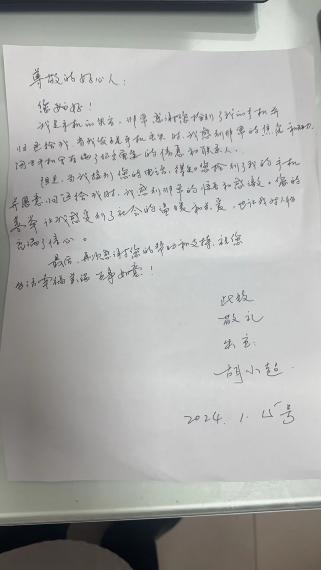 尊敬的好心人：
您好！
我是手机的失主，非常感谢您捡到了我的手机并
归还给我。当我发现手机丢失时，我感到非常的焦虑和
因为手机中存储了很多重要的信息和联系人。
但是，当我接到您的电话，得知您捡到了我的手机
并愿意归还给我时，我感到非常的惊喜和感激。您的
善举让我感受到了社会的温暖和关爱，也让我对人性
充满了信心。
最后，再次感谢您的帮助和支持，祝您
生活幸福美满 万事如意！！
此致
敬礼
失主：
胡小超
2024.1.15号